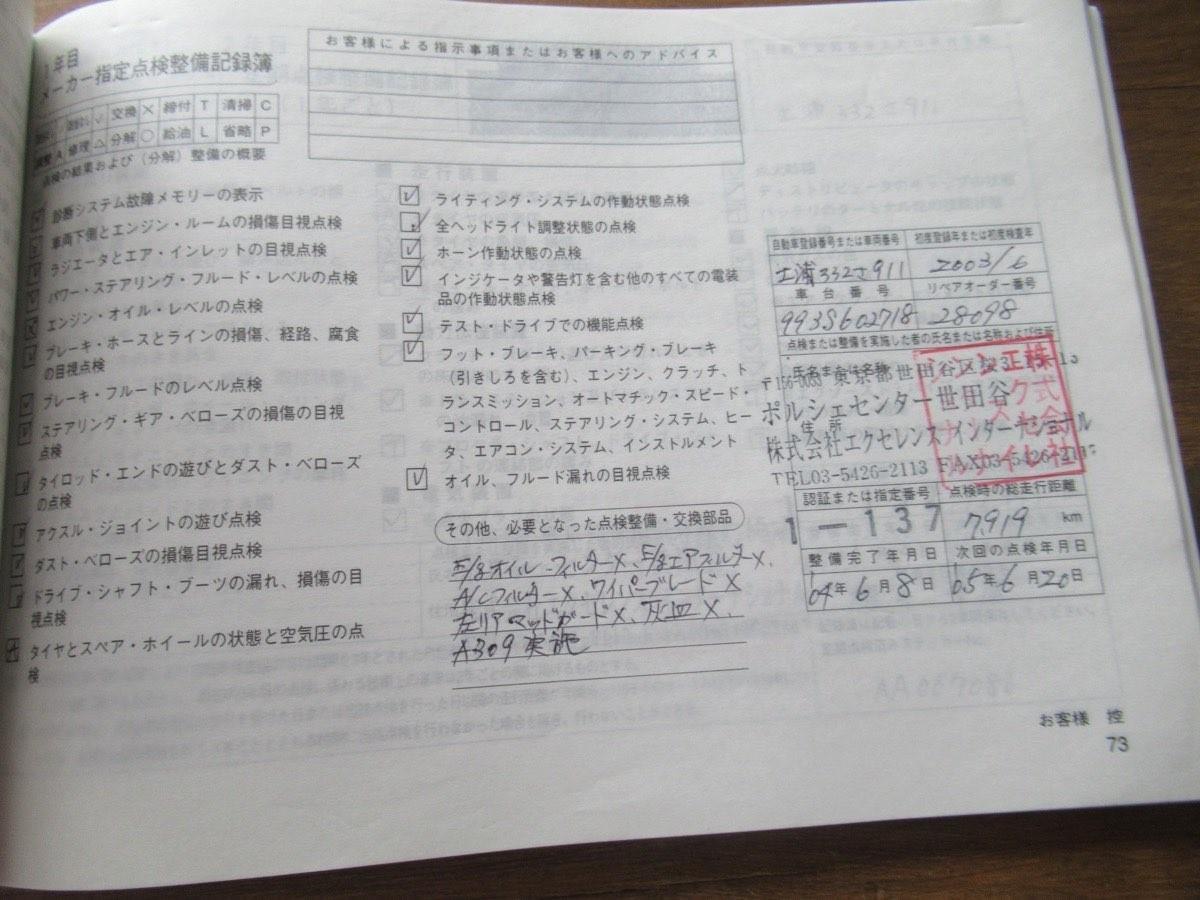 年目
メーカー指定点検整備記録簿
交換 × 締付 T 清掃 C
調整 A 修理 △ 分解 ○ 給油 L 省略 P
点検の結果および(分解)整備の概要
診断システム故障メモリーの表示
車両下側とエンジン・ルームの損傷目視点検
ラジエータとエア・インレットの目視点検
パワー・ステアリング・フルード・レベルの点検
エンジン・オイル・レベルの点検
ブレーキ・ホースとラインの損傷、経路、腐食
の目視点検
ブレーキ・フルードのレベル点検
ステアリング・ギア・ベローズの損傷の目視
点検
タイロッド・エンドの遊びとダスト・ベローズ
の点検
アクスル・ジョイントの遊び点検
ダスト・ベローズの損傷目視点検
ドライブ・シャフト・ブーツの漏れ、損傷の目
視点検
タイヤとスペア・ホイールの状態と空気圧の点
検
お客様による指示事項またはお客様へのアドバイス
ライティング・システムの作動状態点検
全ヘッドライト調整状態の点検
ホーン作動状態の点検
インジケータや警告灯を含む他のすべての電装
品の作動状態点検
テスト・ドライブでの機能点検
フット・ブレーキ、パーキング・ブレーキ
(引きしろを含む)、エンジン、クラッチ、ト
ランスミッション、オートマチック・スピード・
コントロール、ステアリング・システム、ヒー
タ、エアコン・システム、インストルメント
オイル、フルード漏れの目視点検
その他、必要となった点検整備・交換部品
E/gオイル・フィルター×、E/gエアフィルター×、
A/Cフィルター×、ワイパーブレード×
左リアマッドガード×、
A309 実施
自動車登録番号または車両番号 初度登録年または初度検査年
土浦332さ911 2003/6
車台番号 リペアオーダー番号
993S602718 28098
点検または整備を実施した者の氏名または名称および住所
氏名または名称
〒156-0053 東京都世田谷区桜3
ポルシェセンター世田谷
住所
株式会社エクセレンス インターナショナル
TEL03-5426-2113 FAX03-5426-211
株式会社
認証または指定番号 点検時の総走行距離
1-137 7919 km
整備完了年月日 次回の点検年月日
'04年6月8日 '05年6月20日
お客様 控
73